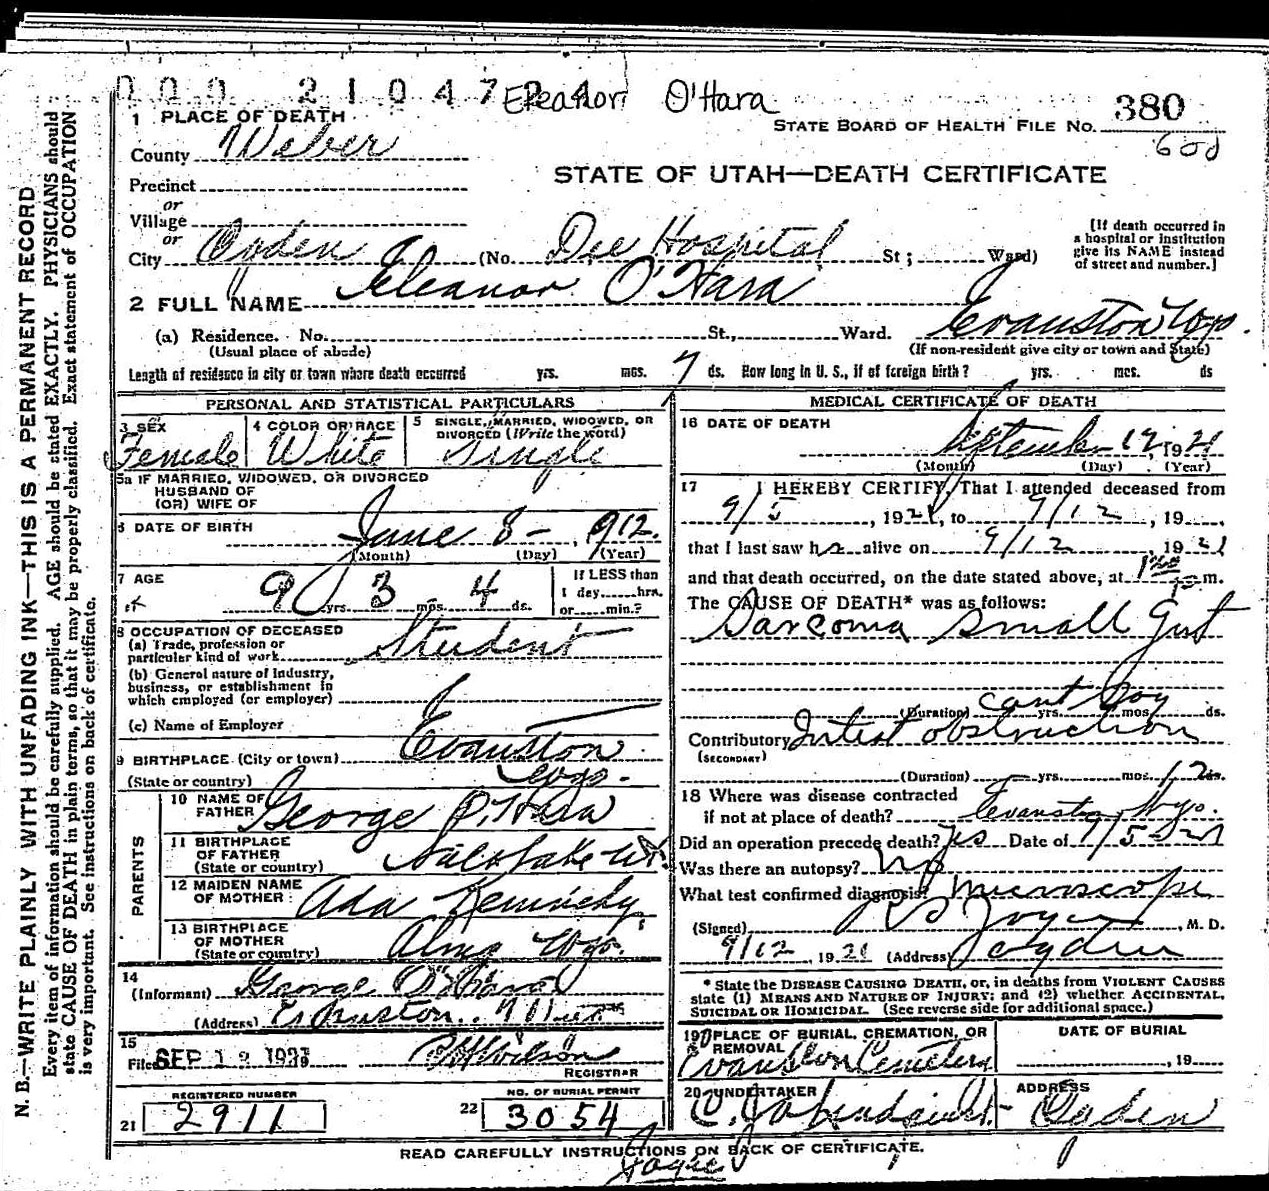 000 21047
Eleanor O'Hara
380
STATE BOARD OF HEALTH FILE No.
600
1 PLACE OF DEATH
County Weber
STATE OF UTAH—DEATH CERTIFICATE
Precinct
or
Village
or
City Ogden (No. Dee Hospital St; Ward)
[If death occurred in
a hospital or institution
give its NAME instead
of street and number.]
2 FULL NAME Eleanor O'Hara
(a) Residence. No. St., Ward. Evanston Wyo.
(Usual place of abode) (If non-resident give city or town and State)
Length of residence in city or town where death occurred yrs. mos. 7 ds. How long in U. S., if of foreign birth? yrs. mos. ds
PERSONAL AND STATISTICAL PARTICULARS
3 SEX
Female
4 COLOR OR RACE
White
5 SINGLE, MARRIED, WIDOWED, OR
DIVORCED (Write the word)
Single
5a IF MARRIED, WIDOWED, OR DIVORCED
HUSBAND OF
(OR) WIFE OF
6 DATE OF BIRTH June 8 - 1912.
(Month) (Day) (Year)
7 AGE
9 yrs. 3 mos. 4 ds.
If LESS than
1 day hrs.
or min.?
8 OCCUPATION OF DECEASED
(a) Trade, profession or
particular kind of work Student
(b) General nature of Industry,
business, or establishment in
which employed (or employer)
(c) Name of Employer
9 BIRTHPLACE (City or town) Evanston
(State or country) Wyo.
PARENTS
10 NAME OF
FATHER George O'Hara
11 BIRTHPLACE
OF FATHER
(State or country) Salt Lake Ut.
12 MAIDEN NAME
OF MOTHER Ada
13 BIRTHPLACE
OF MOTHER
(State or country) Almy Wyo.
14
(Informant) George O'Hara
(Address) Evanston.
15
Filed SEP 12 1921
REGISTRAR
REGISTERED NUMBER
21 2911
NO. OF BURIAL PERMIT
22 3054
MEDICAL CERTIFICATE OF DEATH
16 DATE OF DEATH
September 12, 1921
(Month) (Day) (Year)
17 I HEREBY CERTIFY, That I attended deceased from
9/5, 1921, to 9/12, 19
that I last saw her alive on 9/12 1921
and that death occurred, on the date stated above, at m.
The CAUSE OF DEATH* was as follows:
Sarcoma small Gut
(Duration) cant say yrs. mos. ds.
Contributory Intest obstruction
(SECONDARY)
(Duration) yrs. mos. 12 ds.
18 Where was disease contracted
if not at place of death? Evanston Wyo.
Did an operation precede death? Yes Date of 9/5-21
Was there an autopsy? No
What test confirmed diagnosis? microscope
(Signed) , M. D.
9/12, 1921 (Address) Ogden
* State the DISEASE CAUSING DEATH, or, in deaths from VIOLENT CAUSES
state (1) MEANS AND NATURE OF INJURY; and (2) whether ACCIDENTAL,
SUICIDAL OR HOMICIDAL. (See reverse side for additional space.)
19 PLACE OF BURIAL, CREMATION, OR
REMOVAL
Evanston Cemetery
DATE OF BURIAL
, 19
20 UNDERTAKER
ADDRESS
Ogden
READ CAREFULLY INSTRUCTIONS ON BACK OF CERTIFICATE.
N. B.—WRITE PLAINLY WITH UNFADING INK—THIS IS A PERMANENT RECORD
Every item of information should be carefully supplied. AGE should be stated EXACTLY. PHYSICIANS should
state CAUSE OF DEATH in plain terms, so that it may be properly classified. Exact statement of OCCUPATION
is very important. See instructions on back of certificate.